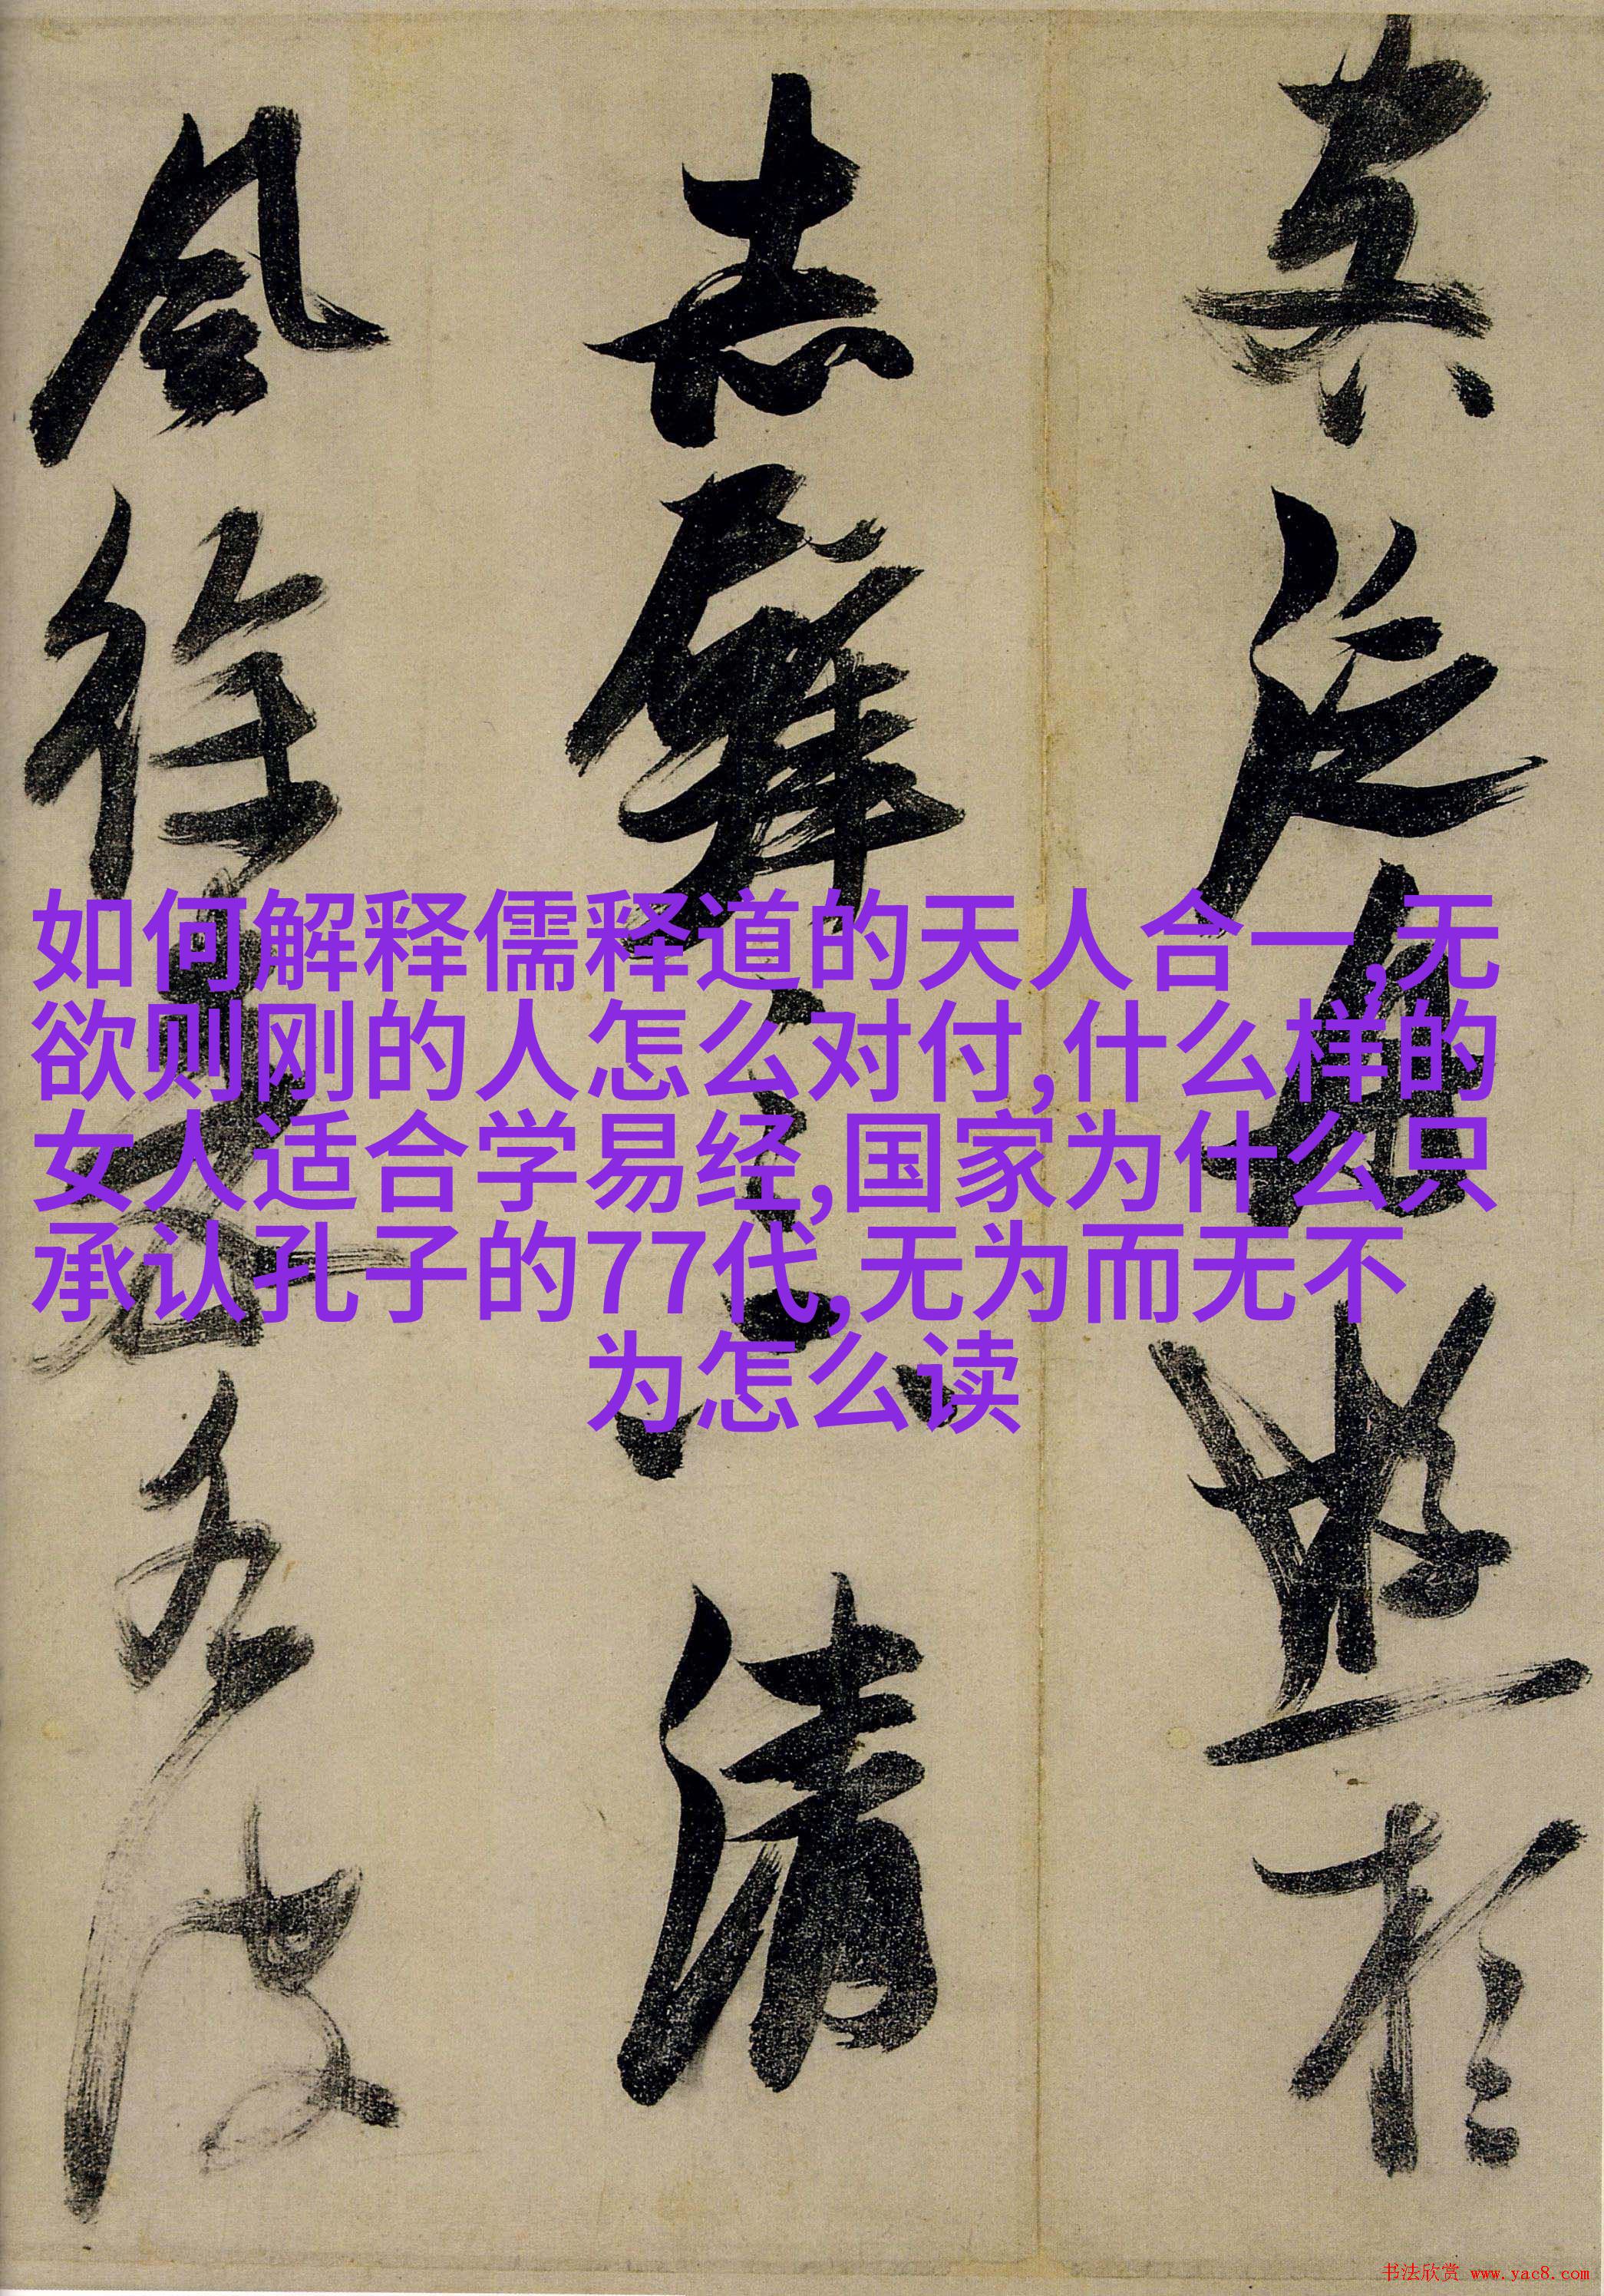 如何解释儒释道的天人合一,无
欲则刚的人怎么对付,什么样的
女人适合学易经,国家为什么只
承认孔子的77代,无为而无不
为怎么读
泛舟遊於
赤壁之下清
風徐來水波
书法欣赏 www.yac8.com